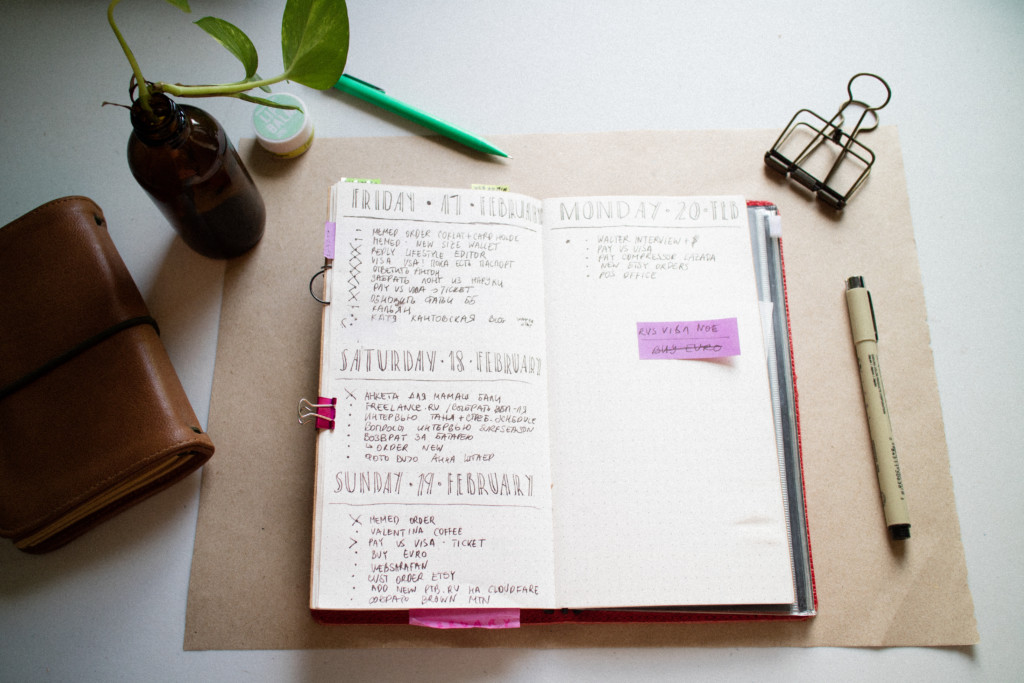 FRIDAY · 17 · FEBRUARY
MEMED ORDER + CARD HOLDE
MEMED - NEW SIZE WALLET
REPLY LIFESTYLE EDITOR
VISA USA! ПОКА ЕСТЬ ПАСПОРТ
ОТВЕТИТЬ
ЗАБРАТЬ ИЗ
PAY US VISA → TICKET
КАЛЬЯН
КАТЯ КАНТОВСКАЯ BLOG
SATURDAY · 18 · FEBRUARY
АНКЕТА ДЛЯ МАМАШ БАЛИ
FREELANCE.RU / СОБРАТЬ
ИНТЕРВЬЮ ТАНЯ + SCHEDULE
ВОПРОСЫ ИНТЕРВЬЮ SURFSEASON
ВОЗВРАТ ЗА БАТАРЕЮ
↳ ORDER NEW
ФОТО АННА ШТЛЕР
SUNDAY · 19 · FEBRUARY
MEMED ORDER
VALENTINA COFFEE
PAY US VISA - TICKET
BUY EVRO
WEBSARAFAN
ORDER ETSY
ADD NEW PTB.RU НА CLOUDFARE
СОБРАТЬ BROWN MTN
MONDAY · 20 · FEB
WALTER INTERVIEW + $
PAY US VISA
PAY COMPRESSOR
NEW ETSY ORDERS
POS OFFICE
RUS VISA
BUY EVRO